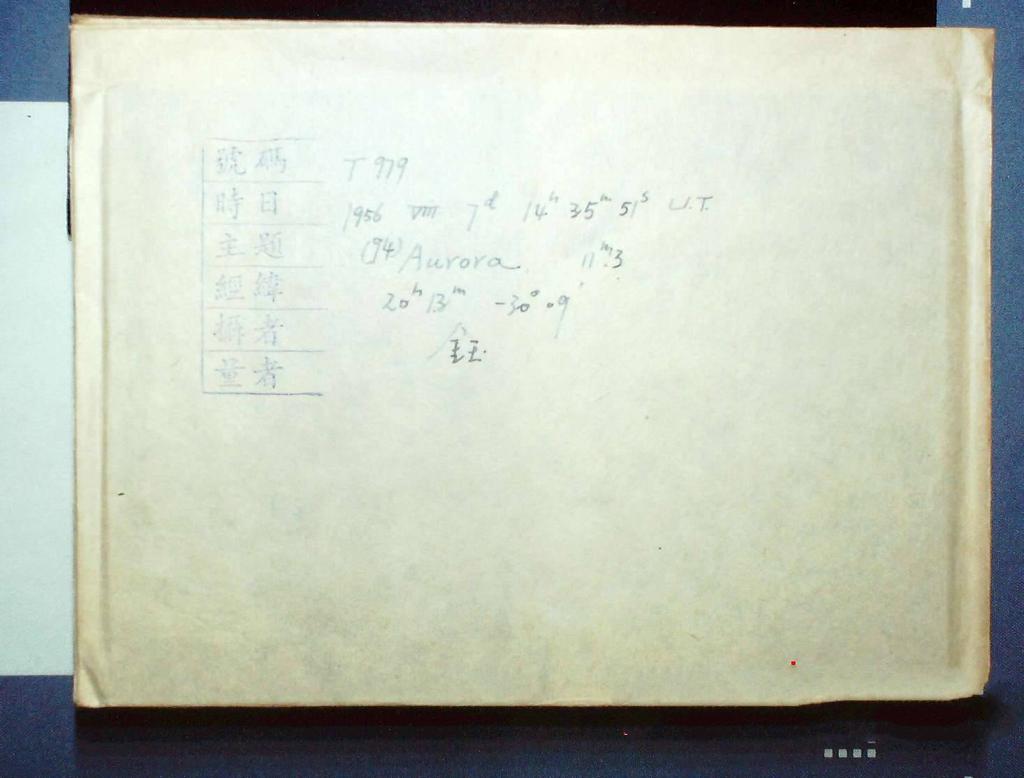 號碼 T 979
時日 1956 VIII 7d 14h 35m 51s U.T.
主題 (94) Aurora 11m.3
經緯 20h 13m -30° 09'
攝者 鈺
量者